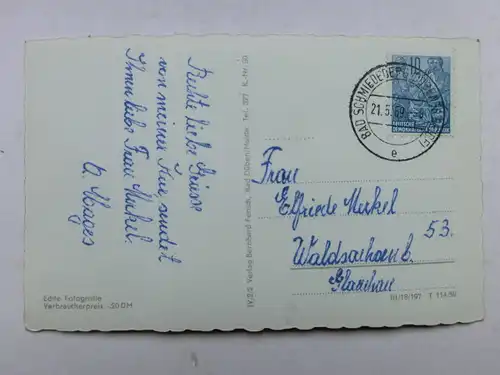 Recht liebe Grüsse
von meiner Kur sendet
Ihnen liebe Frau Merkel.
Echte Fotografie
Verbraucherpreis -,20 DM
IV/2/2 Verlag Bernhard Fensch, Bad Düben/Mulde Tel. 327
BAD SCHMIEDEBERG
21.5.
e
10
DEUTSCHE
DEMOKRATISCHE REPUBLIK
Frau
Elfriede Merkel
Waldsachsen b. 53.
Glauchau
III/18/197